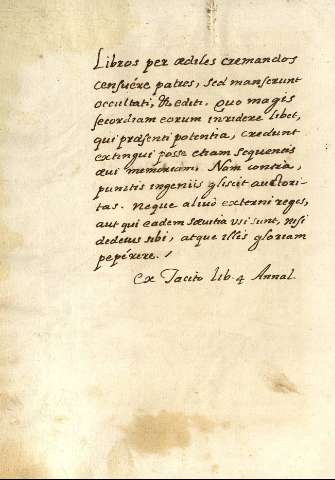 Libros per ædiles cremandos
censuére patres, sed manserunt
occultati, & editi. Quo magis
secordiam eorum inridere libet,
qui præsenti potentia, credunt
extingui posse etiam sequentis
ævi memoriam. Nam contra,
punitis ingeniis gliscit auctori-
tas. Neque aliud externi reges,
aut qui eadem sævitia usi sunt, nisi
dedecus sibi, atque illis gloriam
pepérere. /
ex Tacito lib. 4 Annal.